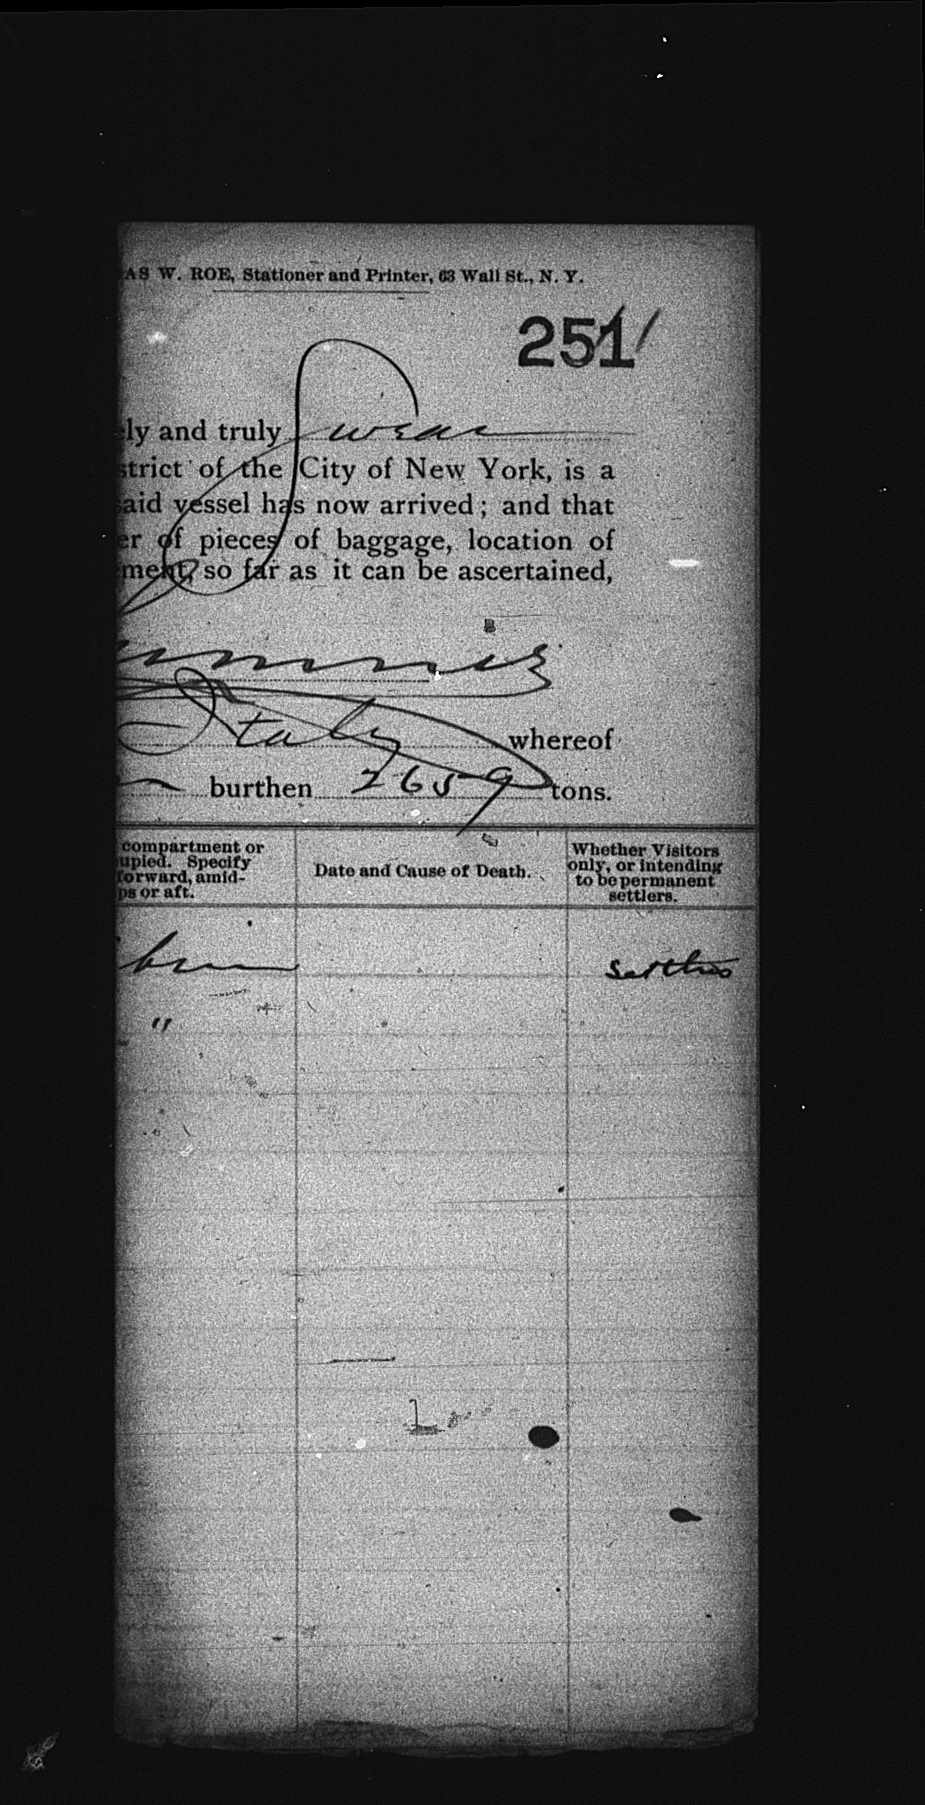 AS W. ROE, Stationer and Printer, 63 Wall St., N. Y.
251
ly and truly swear
strict of the City of New York, is a
said vessel has now arrived; and that
er of pieces of baggage, location of
ment, so far as it can be ascertained,
Italy whereof
burthen 2659 tons.
compartment or
upied. Specify
forward, amid-
ps or aft.
Date and Cause of Death.
Whether Visitors
only, or intending
to be permanent
settlers.
"